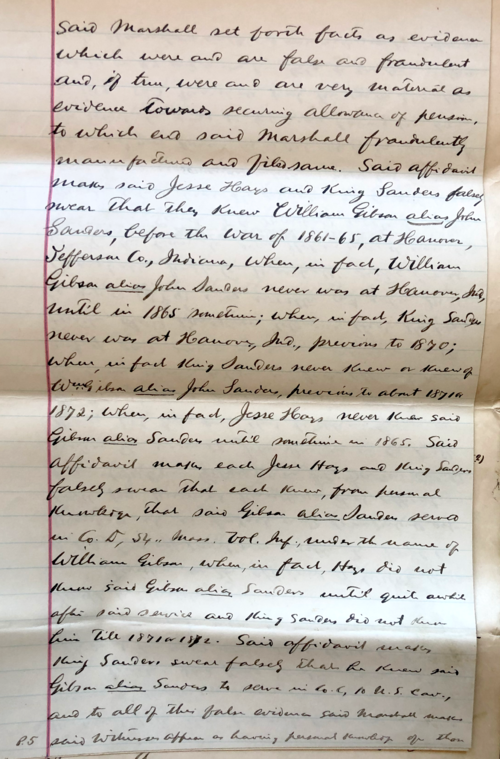 Said Marshall set forth facts as evidence
which were and are false and fraudulent
and, if true, were and are very material as
evidence towards securing allowance of pension,
to which end said Marshall fraudulently
manufactured and filed same. Said affidavit
makes said Jesse Hays and King Sanders falsely
swear that they knew William Gibson alias John
Sanders, before the War of 1861-65, at Hanover,
Jefferson Co., Indiana, when, in fact, William
Gibson alias John Sanders never was at Hanover, Ind.,
until in 1865 sometime; when, in fact, King Sanders
never was at Hanover, Ind., previous to 1870;
when, in fact King Sanders never knew or knew of
Wm Gibson alias John Sanders, previous to about 1871 or
1872; when, in fact, Jesse Hays never knew said
Gibson alias Sanders until sometime in 1865. Said
affidavit makes each Jesse Hays and King Sanders
falsely swear that each knew, from personal
knowledge, that said Gibson alias Sanders served
in Co. D, 54., Mass. Vol. Inf., under the name of
William Gibson, when, in fact, Hays did not
know said Gibson alias Sanders until quit awhile
after said service and King Sanders did not know
him till 1871 or 1872. Said affidavit makes
King Sanders swear falsely that he knew said
Gibson alias Sanders to serve in Co. G, 10 U.S. Cav.,
and to all of this false evidence said Marshall makes
said witnesses appear as having personal knowledge of